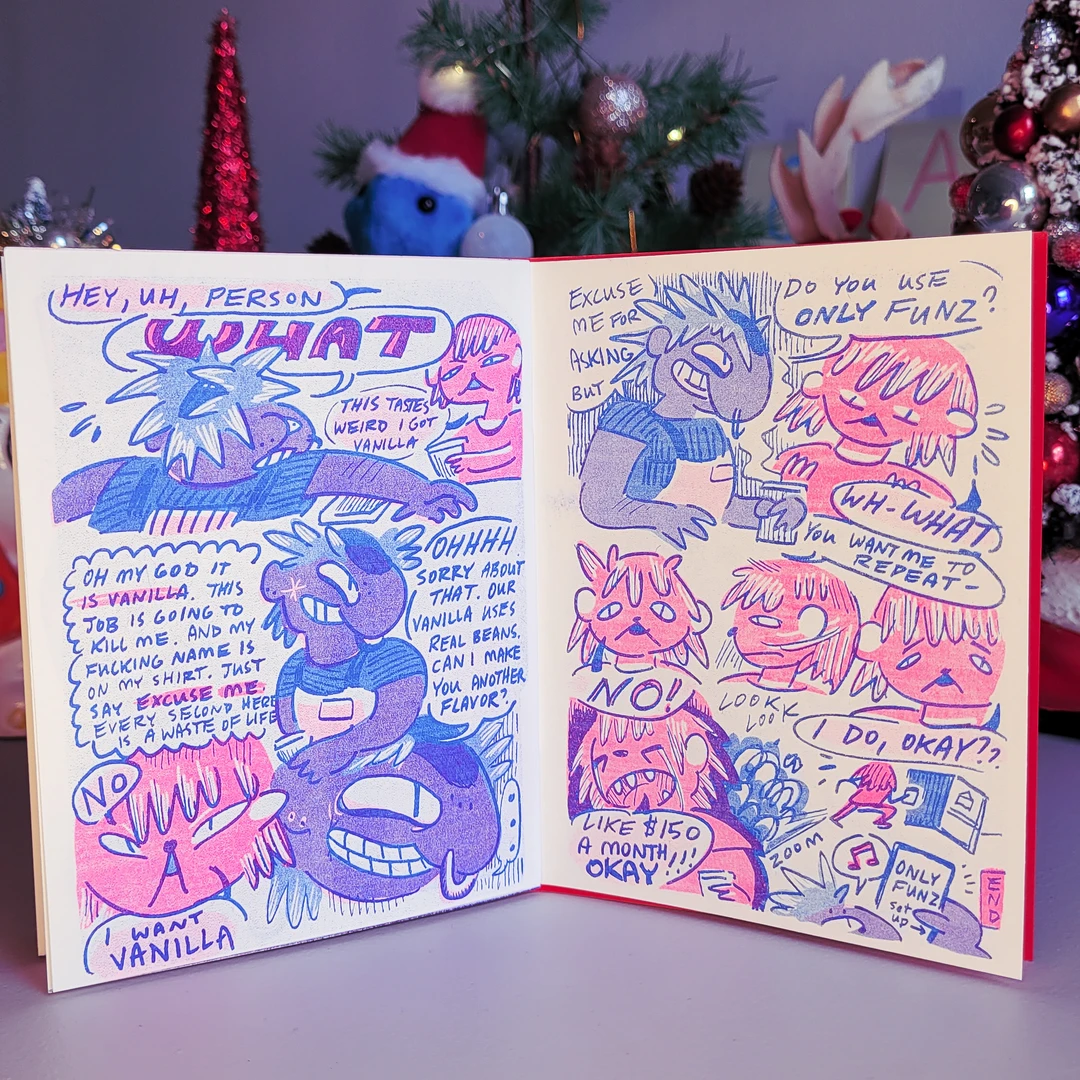 HEY, UH, PERSON
WHAT
THIS TASTES
WEIRD I GOT
VANILLA
OH MY GOD IT
IS VANILLA. THIS
JOB IS GOING TO
KILL ME. AND MY
FUCKING NAME IS
ON MY SHIRT. JUST
SAY EXCUSE ME.
EVERY SECOND HERE
IS A WASTE OF LIFE
OHHHH
SORRY ABOUT
THAT. OUR
VANILLA USES
REAL BEANS.
CAN I MAKE
YOU ANOTHER
FLAVOR?
NO
I WANT
VANILLA
EXCUSE
ME FOR
ASKING
BUT
DO YOU USE
ONLY FUNZ?
WH-WHAT
YOU WANT ME TO
REPEAT-
NO!
LOOK
LOOK
I DO, OKAY??
LIKE $150
A MONTH
OKAY!!!
ZOOM
ONLY
FUNZ
SET
UP →
END
A